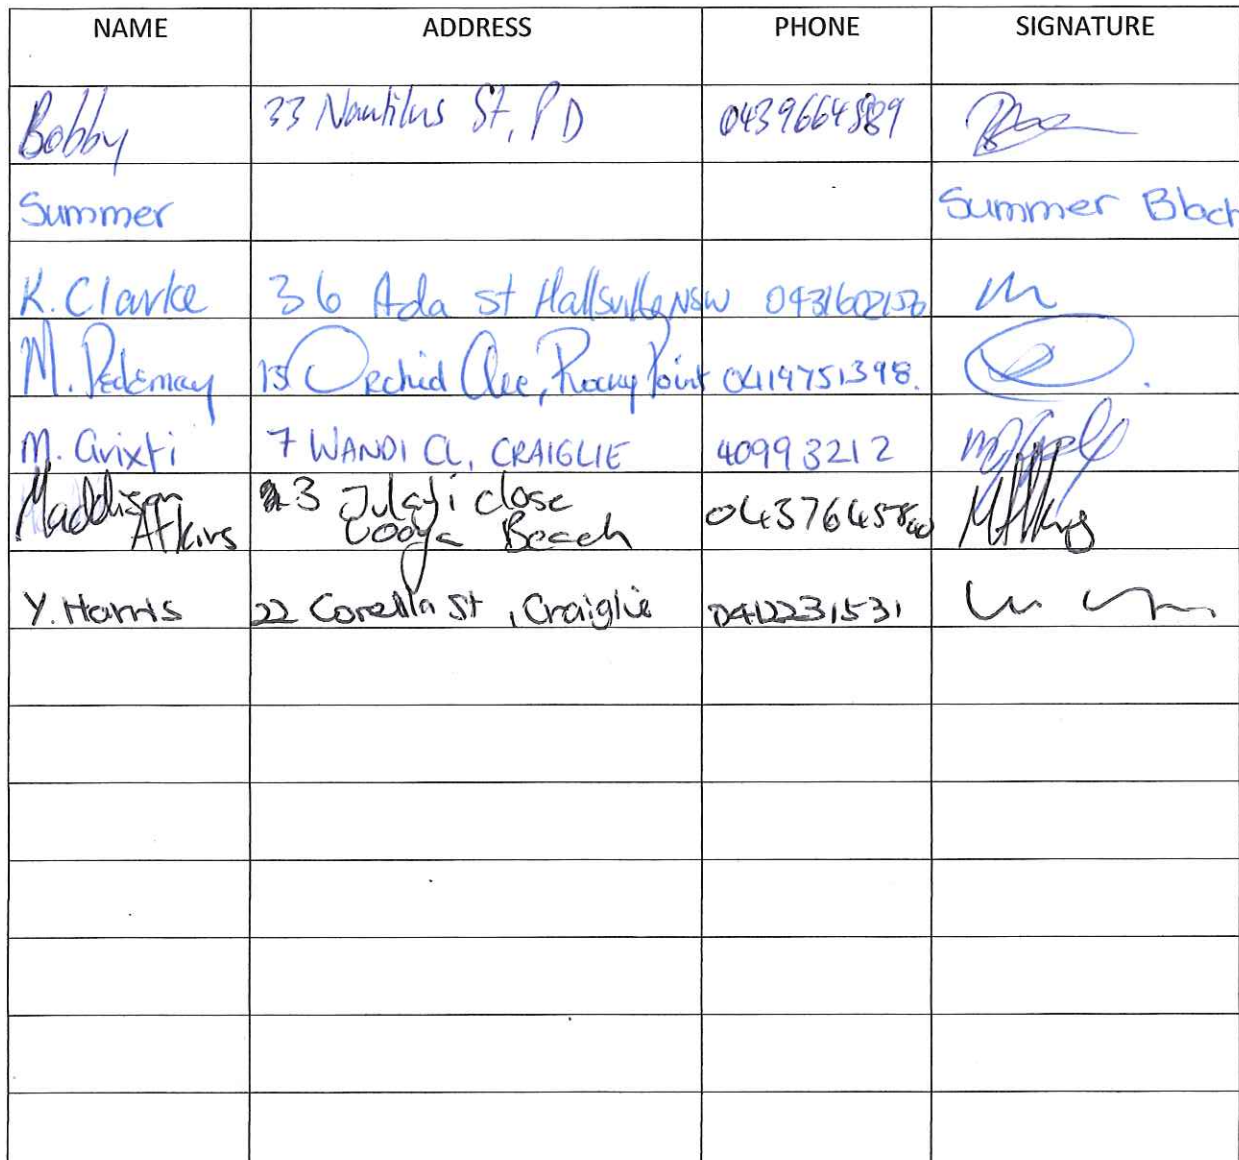 NAME ADDRESS PHONE SIGNATURE
Bobby 33 Nautilus St, PD 0439664889
Summer Summer Black
K. Clarke 36 Ada St Hallsville NSW
M. 15 Orchid Clse, Rocky Point 0419751398.
M. Grixti 7 WANDI CL, CRAIGLIE 40993212
Maddison 23 close
Atkins Cooya Beach
Y. Harris 22 Corella St, Craiglie 0412231531